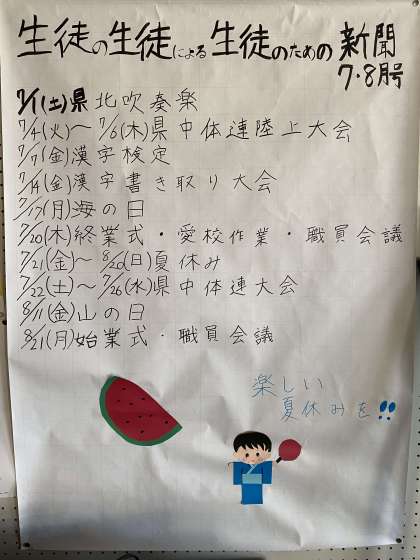 生徒の生徒による生徒のための新聞
7・8月号
7/1(土)県北吹奏楽
7/4(火)～7/6(木)県中体連陸上大会
7/7(金)漢字検定
7/14(金)漢字書き取り大会
7/17(月)海の日
7/20(木)終業式・愛校作業・職員会議
7/21(金)～8/20(日)夏休み
7/22(土)～7/26(水)県中体連大会
8/11(金)山の日
8/21(月)始業式・職員会議
楽しい
夏休みを!!